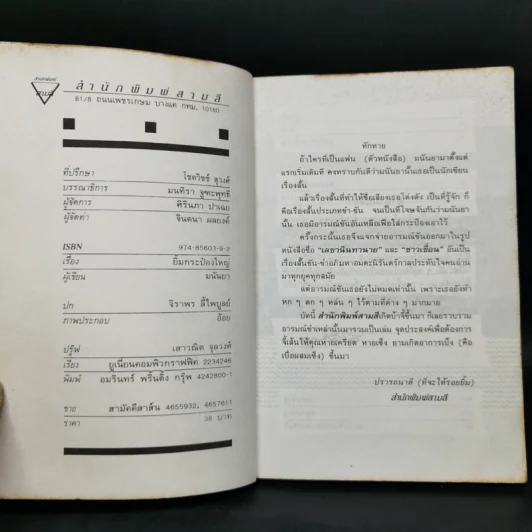 สำนักพิมพ์
สามสี
สำนักพิมพ์สามสี
61/8 ถนนเพชรเกษม บางแค กทม. 10160
ที่ปรึกษา โชดวิชช์ สุวงศ์
บรรณาธิการ มนทิรา จูฑะพุทธิ
ผู้จัดการ ศิรินภา ปาเฉย
ผู้จัดทำ จินตนา ผลยงค์
ISBN 974-85603-9-2
เรื่อง ยิ้มกระป๋องใหญ่
ผู้เขียน มนันยา
ปก จิราพร ลี้ไพบูลย์
ภาพประกอบ อ้อย
ปรู๊ฟ เสาวณิต จุลวงศ์
เรียง ยูเนี่ยนคอมพิวกราฟฟิค 2234246
พิมพ์ อมรินทร์ พริ้นติ้ง กรุ๊พ 4242800-1
ขาย สามัคคีสาส์น 4655932, 4657611
ราคา 38 บาท
ทักทาย
ถ้าใครที่เป็นแฟน (ตัวหนังสือ) มนันยามาตั้งแต่
แรกเริ่มเดิมที คงทราบกันดีว่ามนันยานั้นเธอเป็นนักเขียน
เรื่องสั้น
แล้วเรื่องสั้นที่ทำให้ชื่อเสียงเธอโด่งดัง เป็นที่รู้จัก ก็
คือเรื่องสั้นประเภทขำ-ขัน จนเป็นที่โจษจันกันว่ามนันยา
นั้น เธอมีอารมณ์ขันอันเหลือเฟือใส่กระป๋องเอาไว้
ครั้งกระนั้นเธอจึงแจกจ่ายอารมณ์ขันออกมาในรูป
หนังสือชื่อ "เลขานินทานาย" และ "ชาวเขื่อน" อันเป็น
เรื่องสั้น-ขัน-ขำอภิมหาอมตะนิรันดร์กาลประทับใจคนอ่าน
มาทุกยุคทุกสมัย
แต่อารมณ์ขันเธอยังไม่หมดเท่านั้น เพราะเธอยังทำ
หก ๆ ตก ๆ หล่น ๆ ไว้ตามที่ต่าง ๆ มากมาย
บัดนี้ สำนักพิมพ์สามสีเกิดบ้าจี้ขึ้นมา ก็เลยรวบรวม
อารมณ์ขำเหล่านั้นมารวมเป็นเล่ม จุดประสงค์เพื่อต้องการ
จี้เส้นให้คุณหายเครียด หายเซ็ง ยามเกิดอาการเบ็ง (คือ
เบื่อผสมเซ็ง) ขึ้นมา
ปรารถนาดี (ที่จะให้รอยยิ้ม)
สำนักพิมพ์สามสี